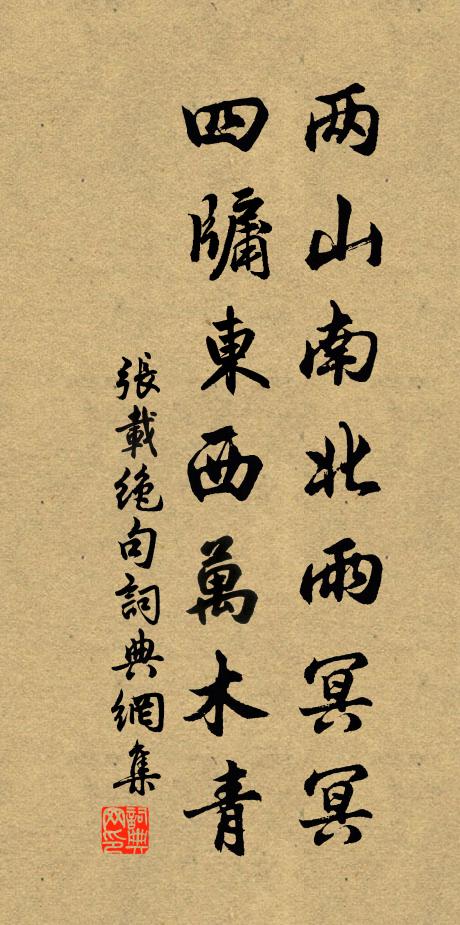 两山南北雨冥冥
四牖東西萬木青
張載绝句詞典網集
詞典网印